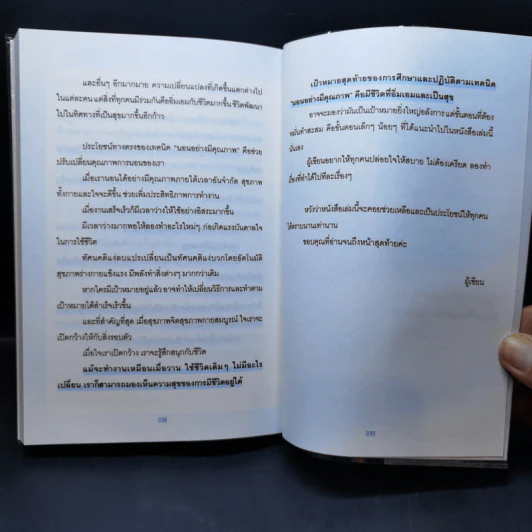 และอื่นๆ อีกมากมาย ความเปลี่ยนแปลงที่เกิดขึ้นแตกต่างไป
ในแต่ละคน แต่สิ่งที่ทุกคนมีร่วมกันคืออิ่มเอมกับชีวิตมากขึ้น ชีวิตพัฒนา
ไปในทิศทางที่เป็นสุขมากขึ้นอีกก้าว
ประโยชน์ทางตรงของเทคนิค "นอนอย่างมีคุณภาพ" คือช่วย
ปรับเปลี่ยนคุณภาพการนอนของเรา
เมื่อเรานอนได้อย่างมีคุณภาพภายใต้เวลาอันจำกัด สุขภาพ
ทั้งกายและใจจะดีขึ้น ช่วยเพิ่มประสิทธิภาพการทำงาน
เมื่องานเสร็จเร็วก็มีเวลาว่างให้ใช้อย่างอิสระมากขึ้น
มีเวลาว่างมากพอให้ลองทำอะไรใหม่ๆ ก่อเกิดแรงบันดาลใจ
ในการใช้ชีวิต
ทัศนคติแง่ลบแปรเปลี่ยนเป็นทัศนคติแง่บวกโดยอัตโนมัติ
สุขภาพร่างกายแข็งแรง มีพลังทำสิ่งต่างๆ มากกว่าเดิม
หากใครมีเป้าหมายอยู่แล้ว อาจทำให้เปลี่ยนวิธีการและทำตาม
เป้าหมายได้สำเร็จเร็วขึ้น
และที่สำคัญที่สุด เมื่อสุขภาพจิตสุขภาพกายสมบูรณ์ ใจเราจะ
เปิดกว้างให้กับสิ่งรอบตัว
เมื่อใจเราเปิดกว้าง เราจะรู้สึกสนุกกับชีวิต
แม้จะทำงานเหมือนเมื่อวาน ใช้ชีวิตเดิมๆ ไม่มีอะไร
เปลี่ยน เราก็สามารถมองเห็นความสุขของการมีชีวิตอยู่ได้
238
เป้าหมายสุดท้ายของการศึกษาและปฏิบัติตามเทคนิค
"นอนอย่างมีคุณภาพ" คือมีชีวิตที่อิ่มเอมและเป็นสุข
อาจจะมองว่ามันเป็นเป้าหมายยิ่งใหญ่อลังการ แต่ขั้นตอนที่ต้อง
หมั่นทำสะสม คือขั้นตอนเล็กๆ น้อยๆ ที่ได้แนะนำไปในหนังสือเล่มนี้
นั่นเอง
ผู้เขียนอยากให้ทุกคนปล่อยใจให้สบาย ไม่ต้องเครียด ลองทำ
เรื่องที่ทำได้ไปทีละเรื่องๆ
หวังว่าหนังสือเล่มนี้จะคอยช่วยเหลือและเป็นประโยชน์ให้ทุกคน
ได้ยาวนานเท่านาน
ขอบคุณที่อ่านจนถึงหน้าสุดท้ายค่ะ
ผู้เขียน
239